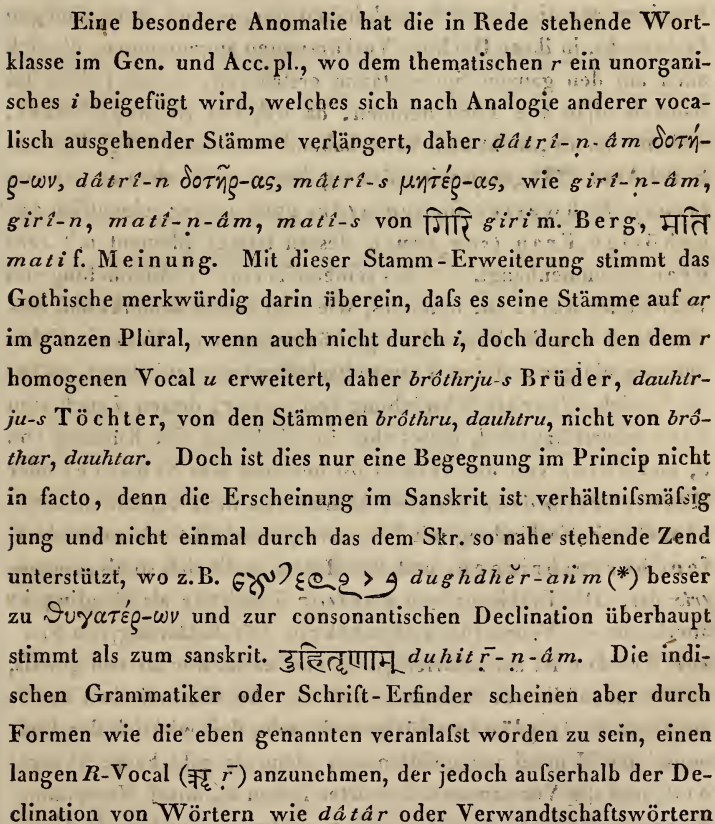 Eine besondere Anomalie hat die in Rede stehende Wort-
klasse im Gen. und Acc. pl., wo dem thematischen r ein unorgani-
sches i beigefügt wird, welches sich nach Analogie anderer voca-
lisch ausgehender Stämme verlängert, daher dâtrî-ṇ-âm δοτή-
ρ-ων, dâtrî-n δοτῆρ-ας, mâtrî-s μητέρ-ας, wie girî-ṇ-âm,
girî-n, matî-n-âm, matî-s von गिरि giri m. Berg, मति
mati f. Meinung. Mit dieser Stamm-Erweiterung stimmt das
Gothische merkwürdig darin überein, daſs es seine Stämme auf ar
im ganzen Plural, wenn auch nicht durch i, doch durch den dem r
homogenen Vocal u erweitert, daher brôthrju-s Brüder, dauhtr-
ju-s Töchter, von den Stämmen brôthru, dauhtru, nicht von brô-
thar, dauhtar. Doch ist dies nur eine Begegnung im Princip nicht
in facto, denn die Erscheinung im Sanskrit ist verhältniſsmäſsig
jung und nicht einmal durch das dem Skr. so nahe stehende Zend
unterstützt, wo z.B. dughdhĕr-aṅm (*) besser
zu ϑυγατέρ-ων und zur consonantischen Declination überhaupt
stimmt als zum sanskrit. दुहितॄणाम् duhitr̄-ṇ-âm. Die indi-
schen Grammatiker oder Schrift-Erfinder scheinen aber durch
Formen wie die eben genannten veranlaſst worden zu sein, einen
langen R-Vocal (ॠ r̄) anzunehmen, der jedoch auſserhalb der De-
clination von Wörtern wie dâtâr oder Verwandtschaftswörtern